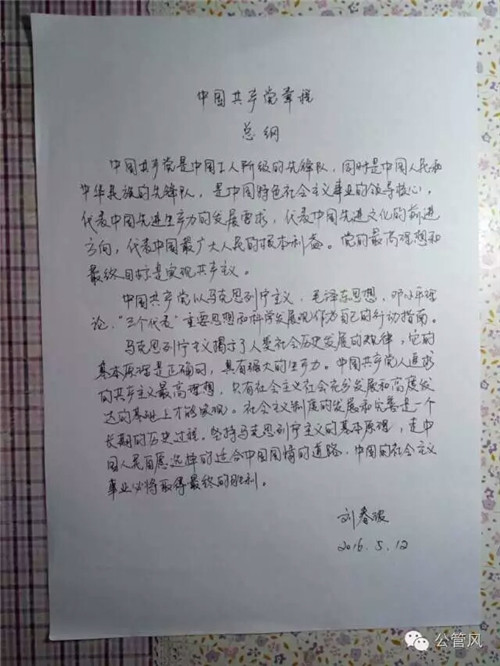 中国共产党章程
总纲
中国共产党是中国工人阶级的先锋队，同时是中国人民和
中华民族的先锋队，是中国特色社会主义事业的领导核心，
代表中国先进生产力的发展要求，代表中国先进文化的前进
方向，代表中国最广大人民的根本利益。党的最高理想和
最终目标是实现共产主义。
中国共产党以马克思列宁主义，毛泽东思想，邓小平理
论，“三个代表”重要思想和科学发展观作为自己的行动指南。
马克思列宁主义揭示了人类社会历史发展的规律，它的
基本原理是正确的，具有强大的生命力。中国共产党人追求
的共产主义最高理想，只有社会主义社会充分发展和高度发
达的基础上才能实现。社会主义制度的发展和完善是一个
长期的历史过程。坚持马克思列宁主义的基本原理，走中
国人民自愿选择的适合中国国情的道路，中国的社会主义
事业必将取得最终的胜利。
刘春波
2016.5.12
公管风